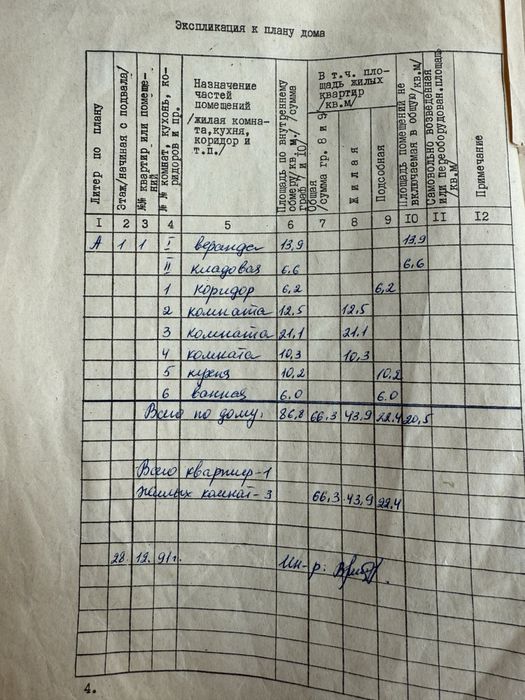 Экспликация к плану дома
Литер по плану
Этаж/начиная с подвала/
№№ квартир или помещений
№№ комнат, кухонь, коридоров и пр.
Назначение
частей
помещений
/жилая комна-
та,кухня,
коридор и
т.п./
Площадь по внутреннему
обмеру/кв.м./ /сумма
граф 7 и 10/
В т.ч. пло-
щадь жилых
квартир
/кв.м/
Общая
/сумма гр. 8 и 9/
Жилая
Подсобная
Площадь помещений не
включаемая в общую/кв.м/
Самовольно возведенная
или переоборудован.площадь
/кв.м/
Примечание
I 2 3 4 5 6 7 8 9 10 II I2
А 1 1 I веранда 13,9 13,9
II кладовая 6.6 6,6
1 коридор 6,2 6,2
2 комната 12,5 12,5
3 комната 21,1 21.1
4 комната 10,3 10,3
5 кухня 10,2 10.2
6 ванная 6.0 6.0
Всего по дому: 86,8 66,3 43,9 22.4 20,5
Всего квартир-1
жилых комнат-3 66,3 43,9 22.4
28. 12. 91г. Ин-р:
4.